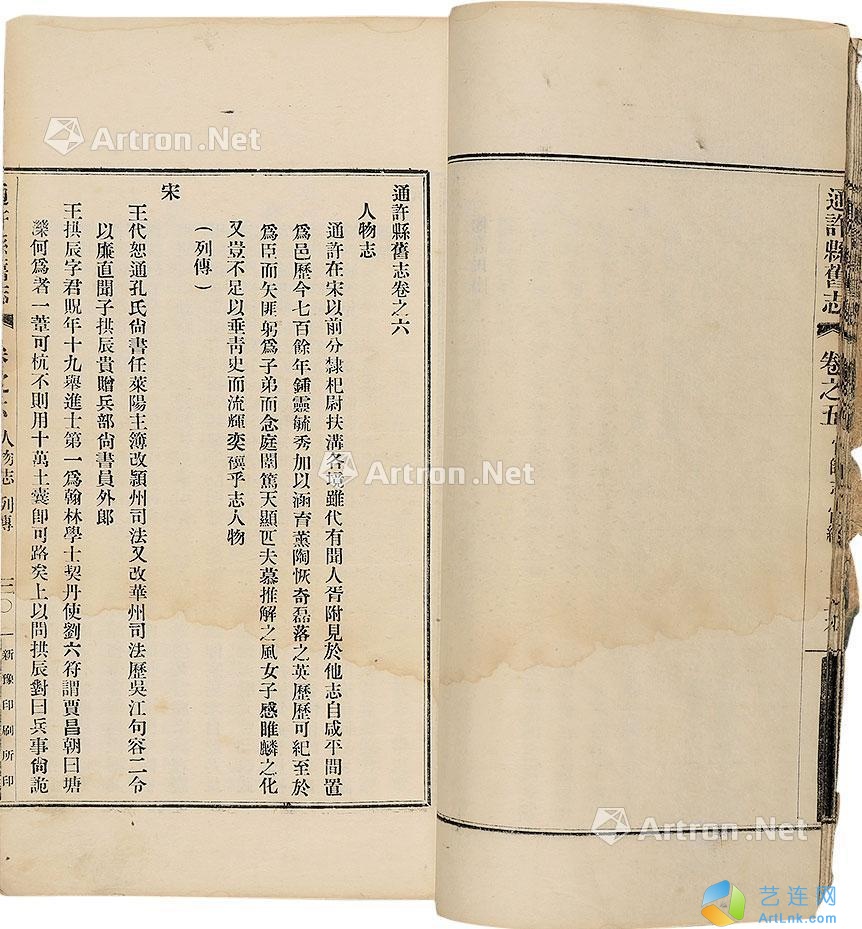 通許縣舊志
卷之五
通許縣舊志卷之六
人物志
通許在宋以前分隸杞尉扶溝各境雖代有聞人胥附見於他志自咸平間置
爲邑歷今七百餘年鍾靈毓秀加以涵育薰陶恢奇磊落之英歷歷可紀至於
爲臣而矢匪躬爲子弟而念庭闈篤天顯匹夫慕推解之風女子感睢麟之化
又豈不足以垂青史而流輝奕禩乎志人物
（列傳）
宋
王代恕通孔氏尙書任萊陽主簿改潁州司法又改華州司法歷吳江句容二令
以廉直聞子拱辰貴贈兵部尙書員外郎
王拱辰字君貺年十九舉進士第一爲翰林學士契丹使劉六符謂賈昌朝曰塘
濼何爲者一葦可杭不則用十萬土囊卽可路矣上以問拱辰對曰兵事尙詭
通許縣舊志
卷之六
人物志 列傳
新豫印刷所印
Artron.Net
Artron.Net
Artron.Net
艺连网
ArtLnk.com